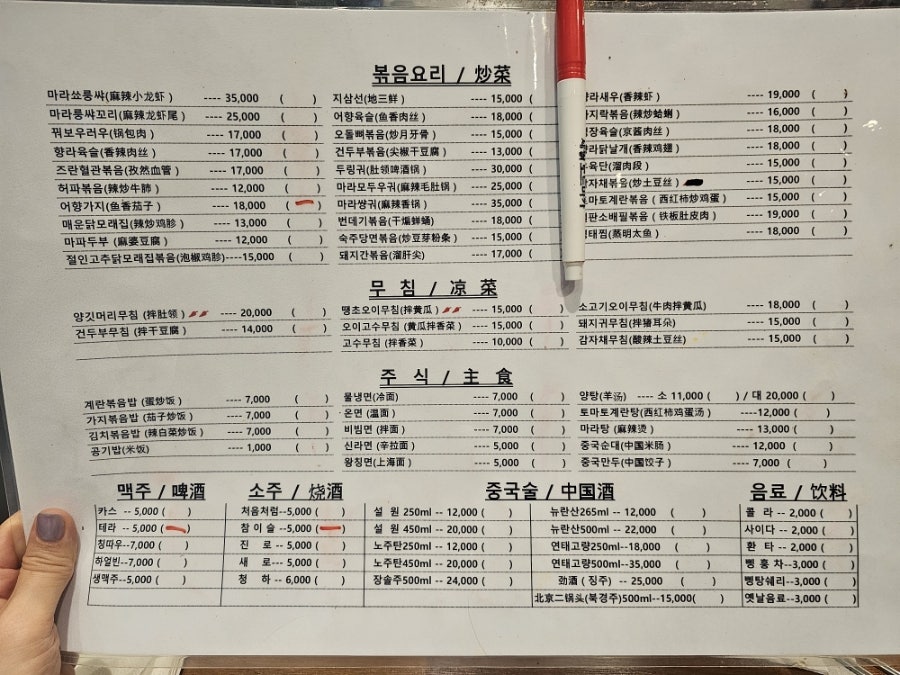 볶음요리 / 炒菜
마라쑈룽쌰(麻辣小龙虾) ---- 35,000 ( )
마라룽쌰꼬리(麻辣龙虾尾) ---- 25,000 ( )
꿔보우러우(锅包肉) ---- 17,000 ( )
향라육슬(香辣肉丝) ---- 17,000 ( )
즈란혈관볶음(孜然血管) ---- 17,000 ( )
허파볶음(辣炒牛肺) ---- 12,000 ( )
어향가지(鱼香茄子) ---- 18,000 ( )
매운닭모래집(辣炒鸡胗) ---- 13,000 ( )
마파두부 (麻婆豆腐) ---- 12,000 ( )
절인고추닭모래집볶음(泡椒鸡胗)----15,000 ( )
지삼선(地三鲜) ---- 15,000 (
어향육슬(鱼香肉丝) ---- 18,000 (
오돌뼈볶음(炒月牙骨) ---- 15,000 (
건두부볶음(尖椒干豆腐) ---- 13,000 (
두링궈(肚领啤酒锅) ---- 30,000 (
마라모두우궈(麻辣毛肚锅) ---- 25,000 (
마라쌍궈(麻辣香锅) ---- 35,000 (
번데기볶음(干煸鲜蛹) ---- 18,000 (
숙주당면볶음(炒豆芽粉条) ---- 15,000 (
돼지간볶음(溜肝尖) ---- 17,000 (
라새우(香辣虾) ---- 19,000 ( )
지락볶음(辣炒蛤蜊) ---- 16,000 ( )
장육슬(京酱肉丝) ---- 18,000 ( )
라닭날개(香辣鸡翅) ---- 18,000 ( )
육단(溜肉段) ---- 15,000 ( )
자채볶음(炒土豆丝) ---- 15,000 ( )
마토계란볶음 (西红柿炒鸡蛋) ---- 15,000 ( )
판소배필볶음 (铁板肚皮肉) ---- 19,000 ( )
태찜(蒸明太鱼) ---- 18,000 ( )
무 침 / 凉 菜
양깃머리무침 (拌肚领) ---- 20,000 ( )
건두부무침 (拌干豆腐) ---- 14,000 ( )
땡초오이무침(拌黄瓜) ---- 15,000 ( )
오이고수무침 (黄瓜拌香菜) ---- 15,000 ( )
고수무침 (拌香菜) ---- 10,000 ( )
소고기오이무침(牛肉拌黄瓜) ---- 18,000 ( )
돼지귀무침(拌猪耳朵) ---- 15,000 ( )
감자채무침(酸辣土豆丝) ---- 15,000 ( )
주 식 / 主 食
계란볶음밥 (蛋炒饭) ---- 7,000 ( )
가지볶음밥 (茄子炒饭) ---- 7,000 ( )
김치볶음밥 (辣白菜炒饭) ---- 7,000 ( )
공기밥(米饭) ---- 1,000 ( )
물냉면(冷面) ---- 7,000 ( )
온면 (温面) ---- 7,000 ( )
비빔면 (拌面) ---- 7,000 ( )
신라면 (辛拉面) ---- 5,000 ( )
왕칭면(上海面) ---- 5,000 ( )
양탕(羊汤) ---- 소 11,000 ( ) / 대 20,000 ( )
토마토계란탕(西红柿鸡蛋汤) ----12,000 ( )
마라탕 (麻辣烫) ---- 13,000 ( )
중국순대(中国米肠) ---- 12,000 ( )
중국만두(中国饺子) ---- 7,000 ( )
맥주 / 啤酒
카스 -- 5,000 ( )
테라 -- 5,000 ( )
칭따우--7,000 ( )
하얼빈--7,000 ( )
생맥주--5,000 ( )
소주 / 烧酒
처음처럼--5,000 ( )
참이슬--5,000 ( )
진 로 -- 5,000 ( )
새 로--- 5,000 ( )
청 하 -- 6,000 ( )
중국술 / 中国酒
설 원 250ml -- 12,000 ( )
설 원 450ml -- 20,000 ( )
노주탄250ml --12,000 ( )
노주탄450ml -- 20,000 ( )
장솔주500ml -- 24,000 ( )
뉴란산265ml -- 12,000 ( )
뉴란산500ml -- 22,000 ( )
연태고량250ml--18,000 ( )
연태고량500ml--35,000 ( )
劲酒 ( 징주) -- 25,000 ( )
北京二锅头(북경주)500ml--15,000( )
음료 / 饮料
콜 라 -- 2,000 ( )
사이다 -- 2,000 ( )
환 타 -- 2,000 ( )
삥홍차--3,000 ( )
삥탕쉐리--3,000 ( )
옛날음료--3,000 ( )